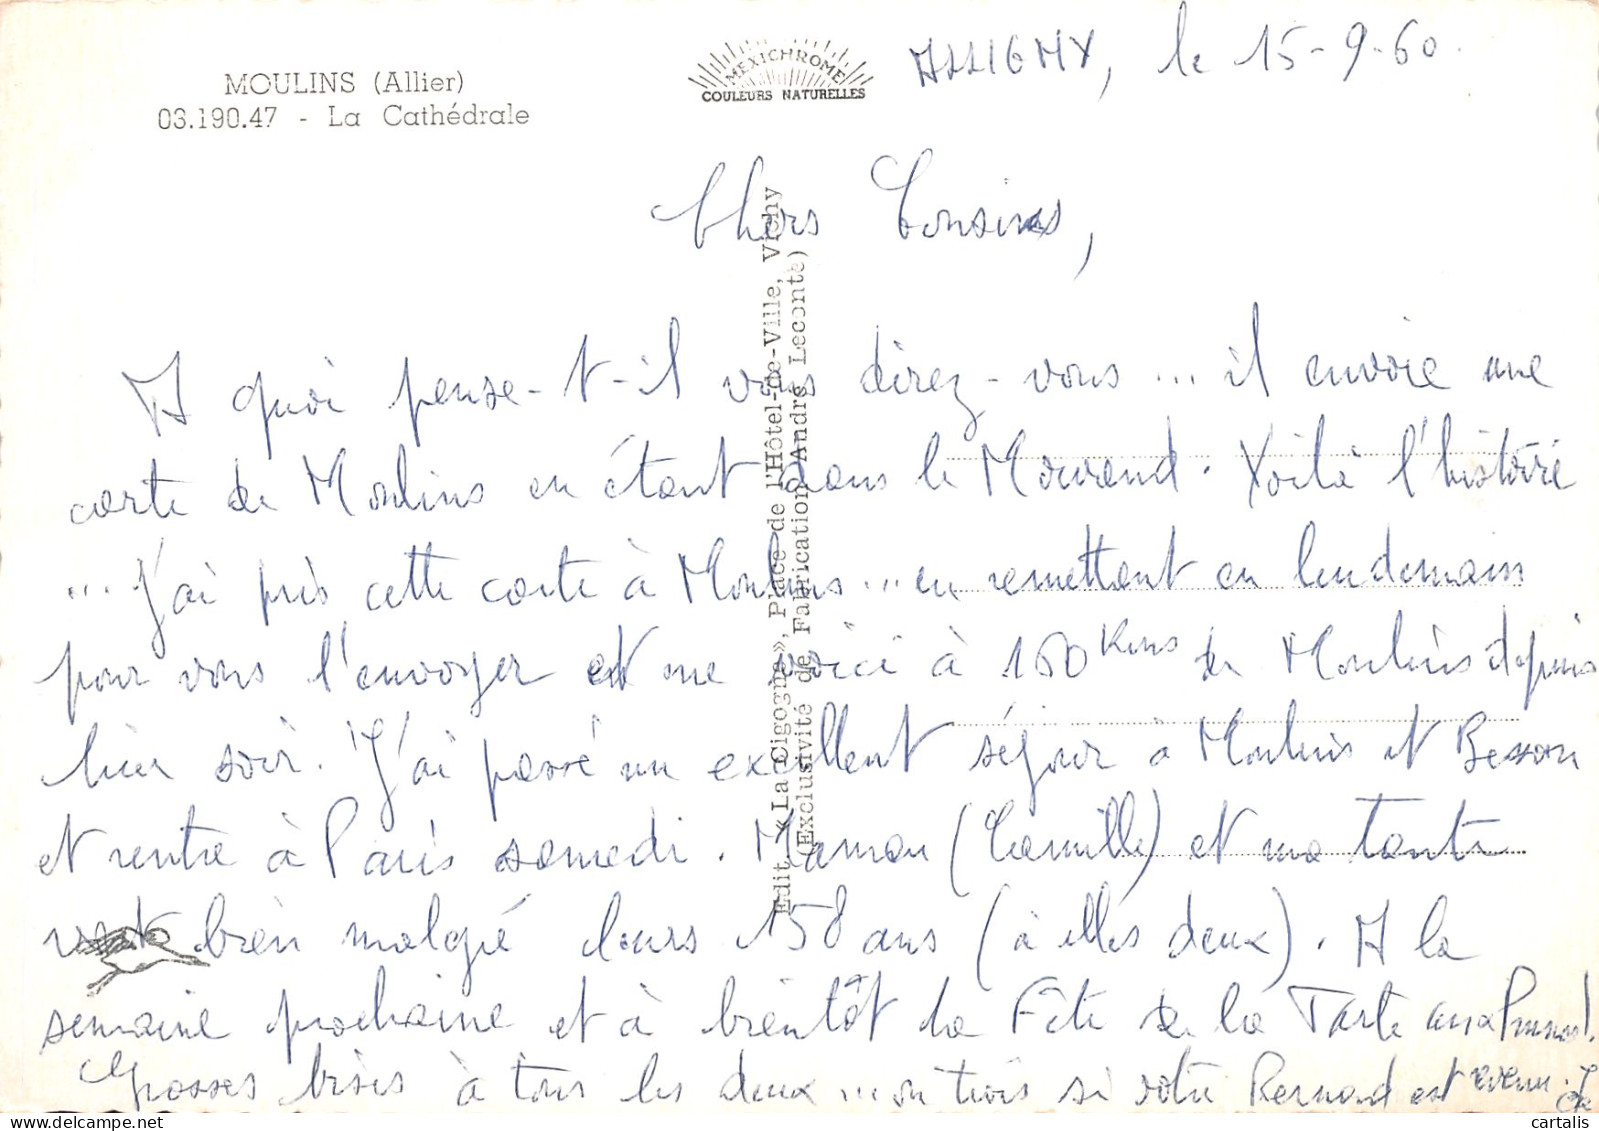 MOULINS (Allier)
03.190.47 - La Cathédrale
MEXICHROME
COULEURS NATURELLES
ALLIGNY, le 15-9-60.
Chers Cousins,
A quoi pense-t-il vous direz-vous ... il envoie une
carte de Moulins en étant dans le Morvand. Voilà l'histoire
... J'ai pris cette carte à Moulins ... en remettant en lendemain
pour vous l'envoyer et me voici à 100 Kms de Moulins depuis
hier soir. J'ai passé un excellent séjour à Moulins et Besson
et rentre à Paris samedi. Maman (Camille) et ma tante
vont bien malgré leurs 158 ans (à elles deux). A la
semaine prochaine et à bientôt la Fête de la Tarte aux Prunes!
Grosses bises à tous les deux ... ou trois si votre Bernard est revenu.
Edit. « La Cigogne », Place de l'Hôtel-de-Ville, Vichy
(Exclusivité de Fabrication André Leconte)
cartalis
delcampe.net